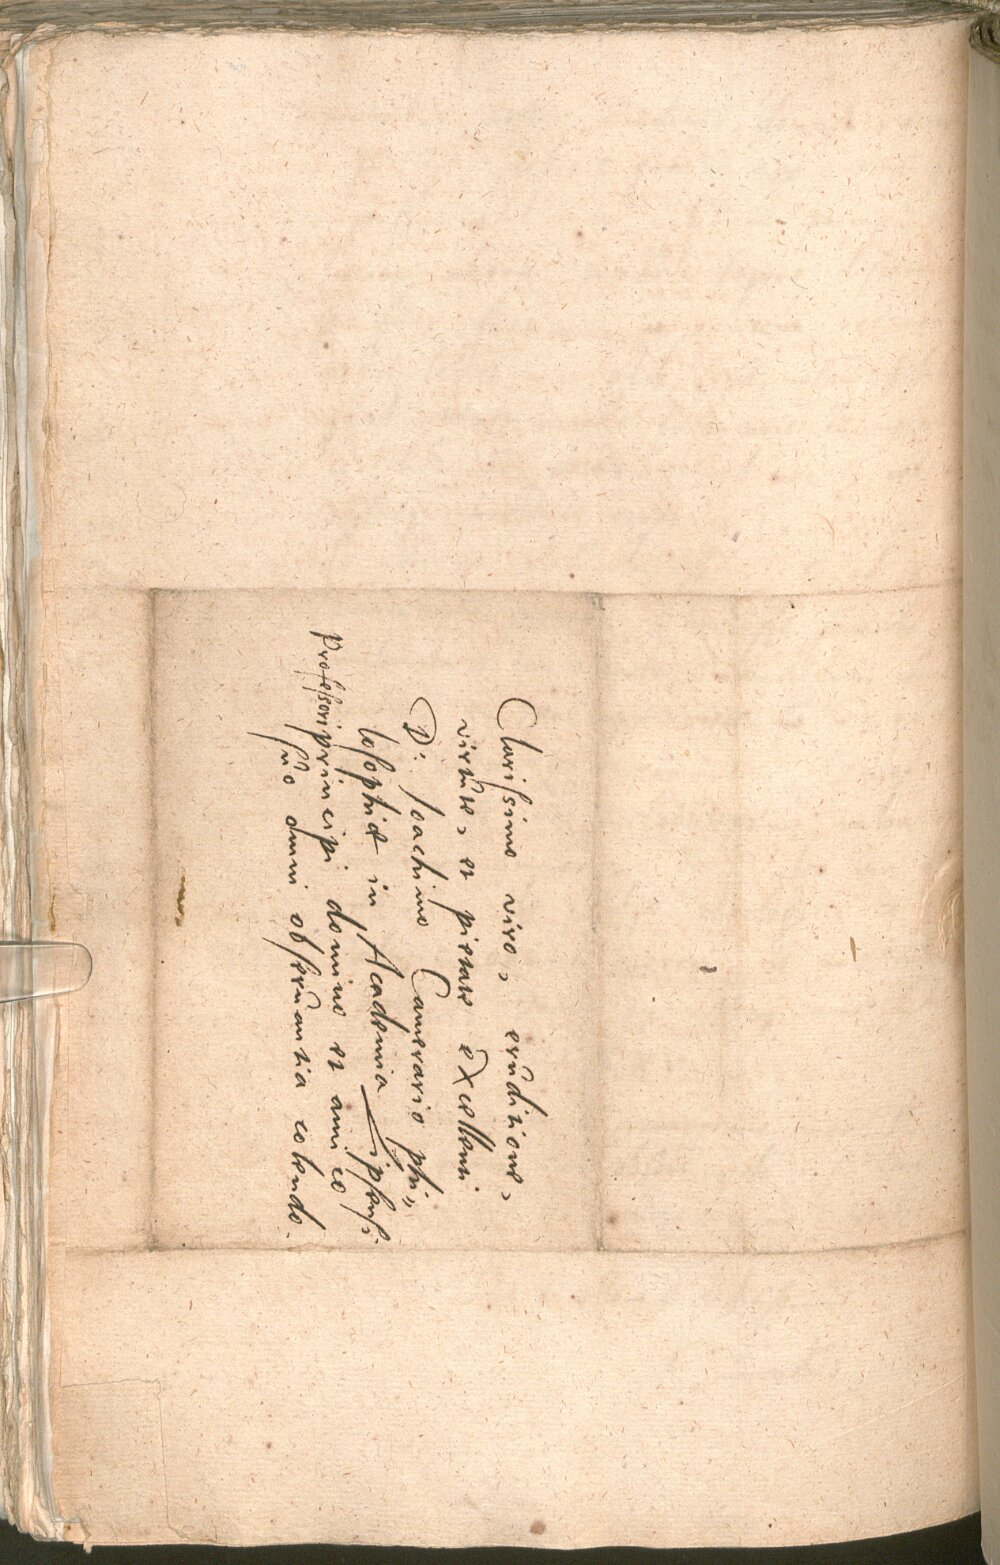 Clarissimo viro, eruditione,
virtute, et pietate excellenti
D: Ioachimo Camerario phi„
losophiæ in Academia Lipsensi
Professori principi domino et amico
suo omni obseruantia colendo.